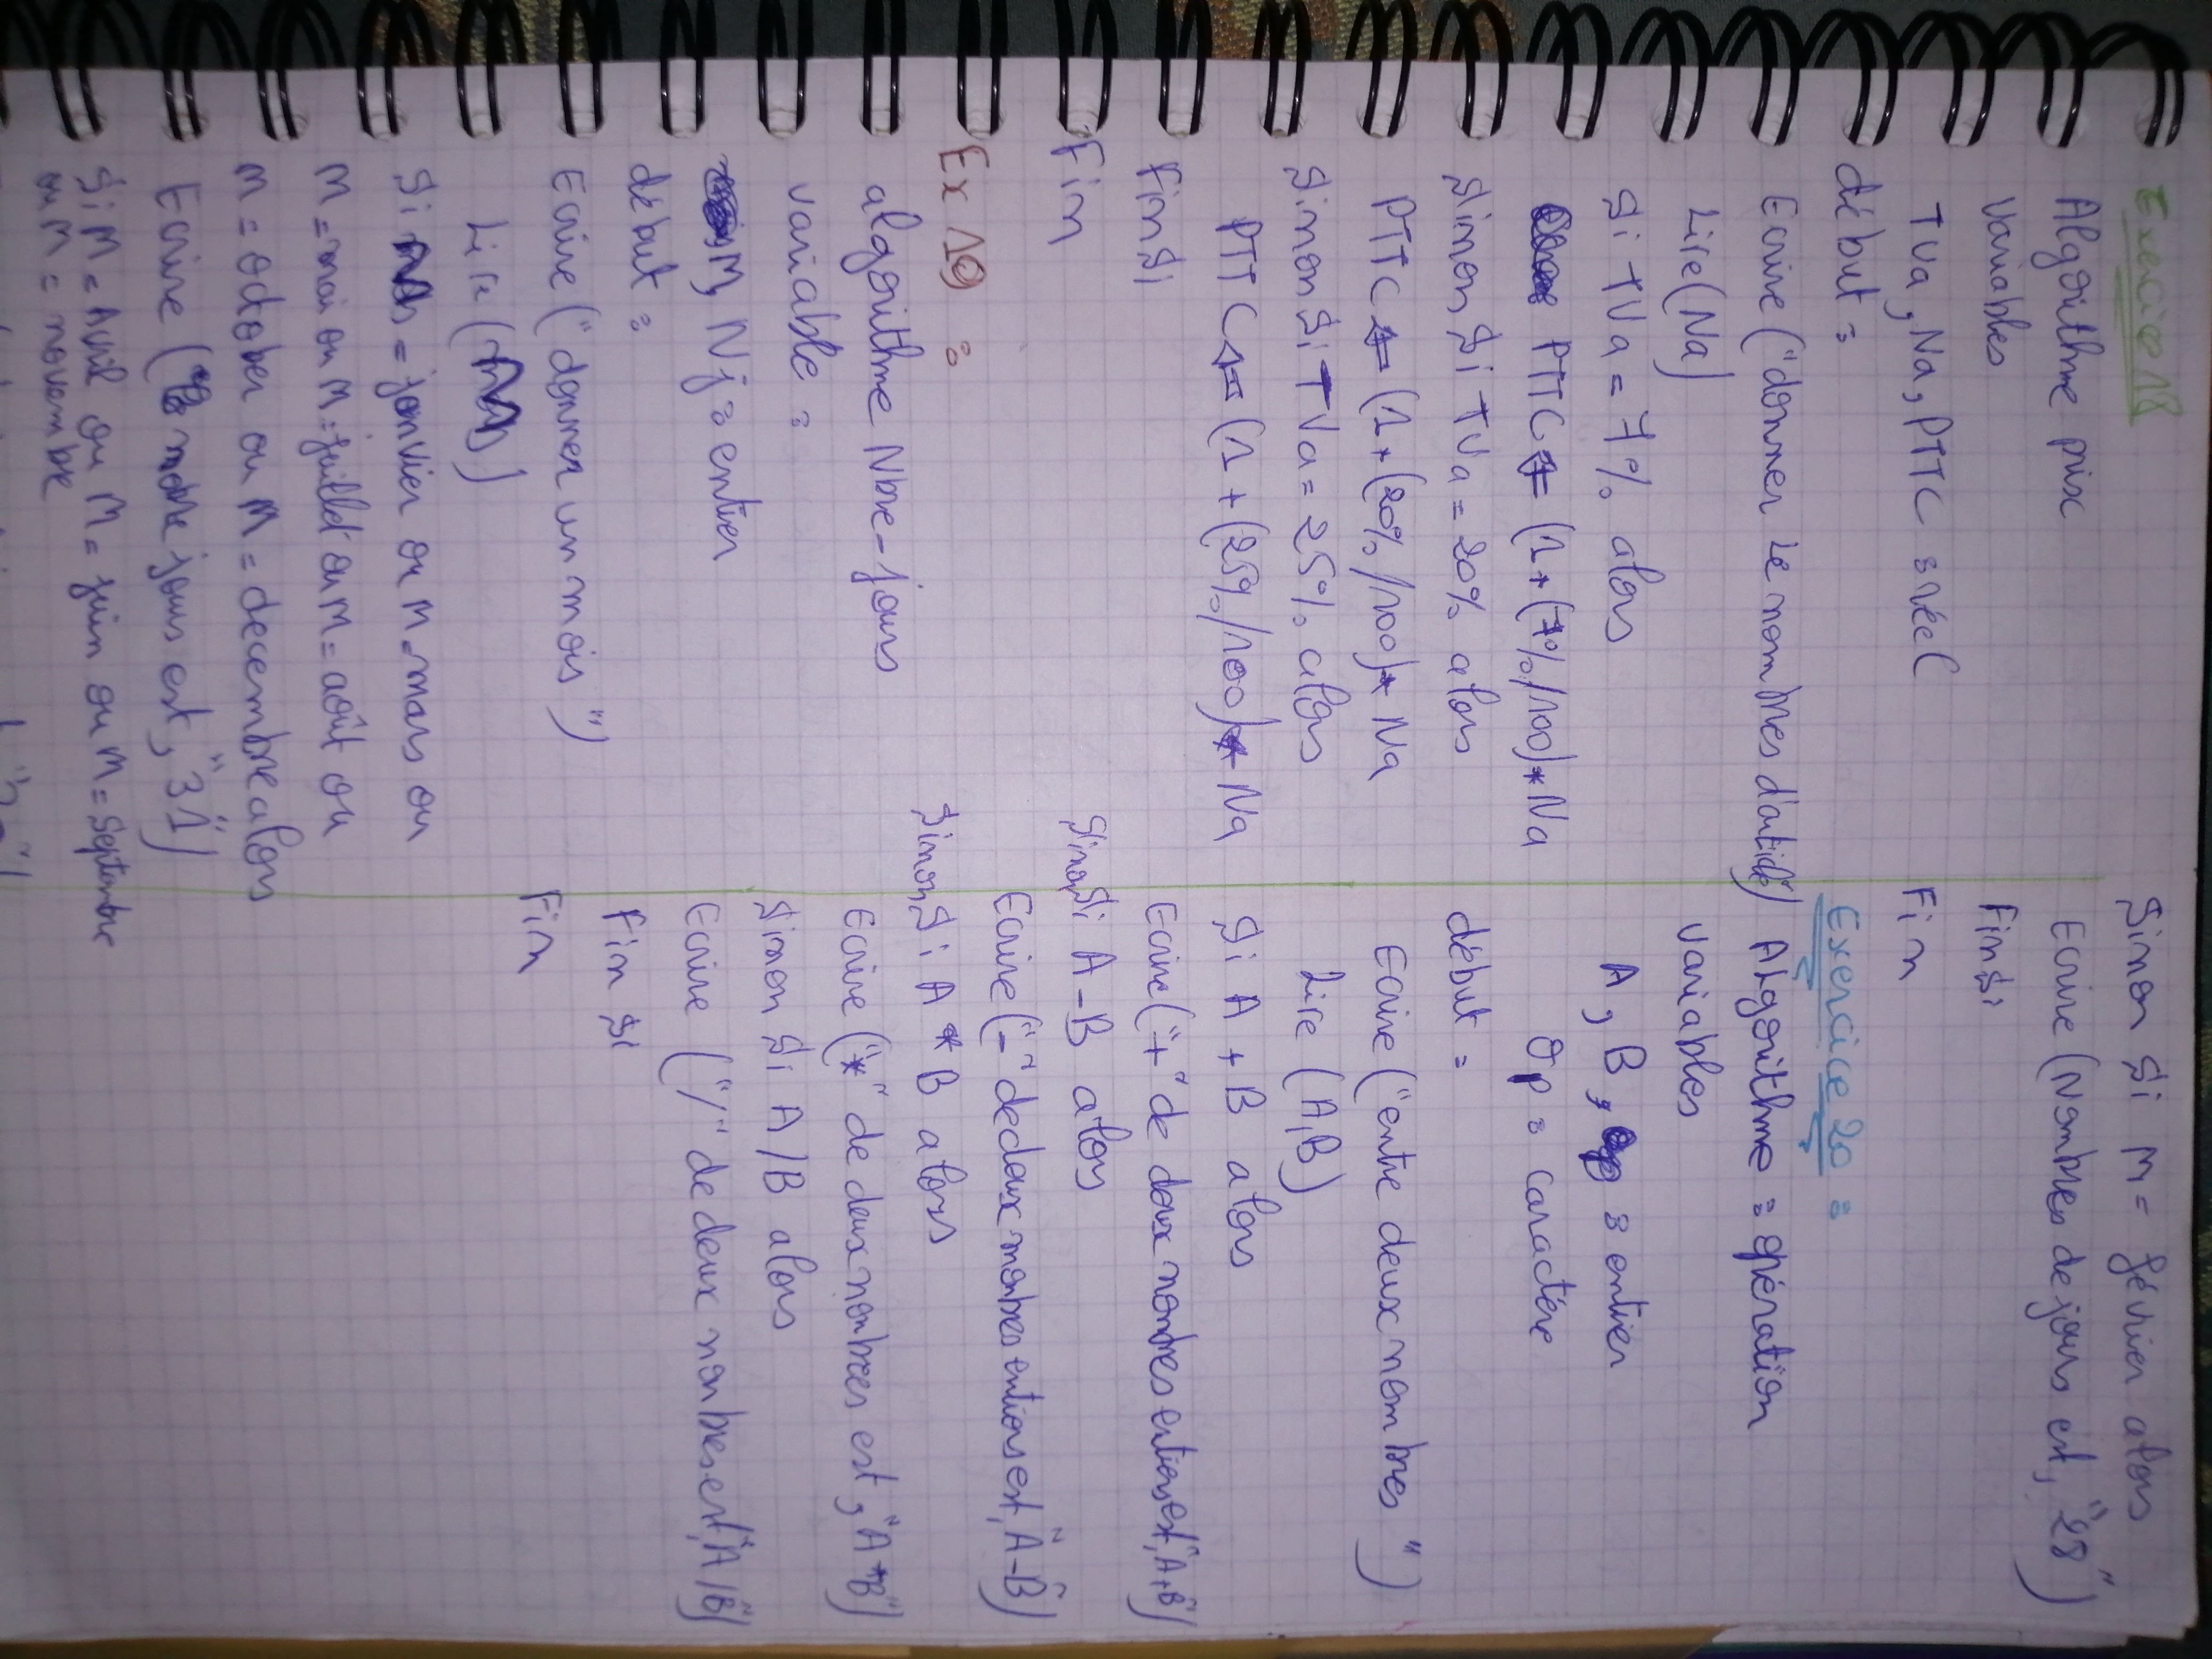 Exercice 18
Algorithme prix
variables
TVa, Na, PTTC : réel
début :
Ecrire ("donner le nombres d'article")
Lire (Na)
Si TVa = 7% alors
PTTC ← (1 + (7%/100)*Na
Sinon, Si TVa = 20% alors
PTTC ← (1 + (20%/100)* Na
Sinon Si TVa = 25% alors
PTTC ← (1 + (25%/100)* Na
FinSi
Fin
Ex 19 :
algorithme Nbre-jours
variable :
M, Nj : entier
début :
Ecrire ("donner un mois")
Lire (
Si = janvier ou M = mars ou
M = mai ou M = juillet ou M = août ou
M = octobre ou M = decembre alors
Ecrire ( nbre jours est, "31")
Si M = Avril ou M = juin ou M = Septembre
ou M = novembre
Sinon Si M = février alors
Ecrire (Nombres de jours est, "28")
FinSi
Fin
Exercice 20 :
ALgorithme : opération
variables
A, B, : entier
Op : caractère
début :
Ecrire ("entre deux nombres")
Lire (A,B)
Si A + B alors
Ecrire ("+" de deux nombres entiers est, "A+B")
Sinon, Si A - B alors
Ecrire ("-" de deux nombres entiers est, "A-B")
Sinon, Si A * B alors
Ecrire ("*" de deux nombres est, "A*B")
Sinon Si A / B alors
Ecrire ("/" de deux nombres est, "A/B")
Fin si
Fin